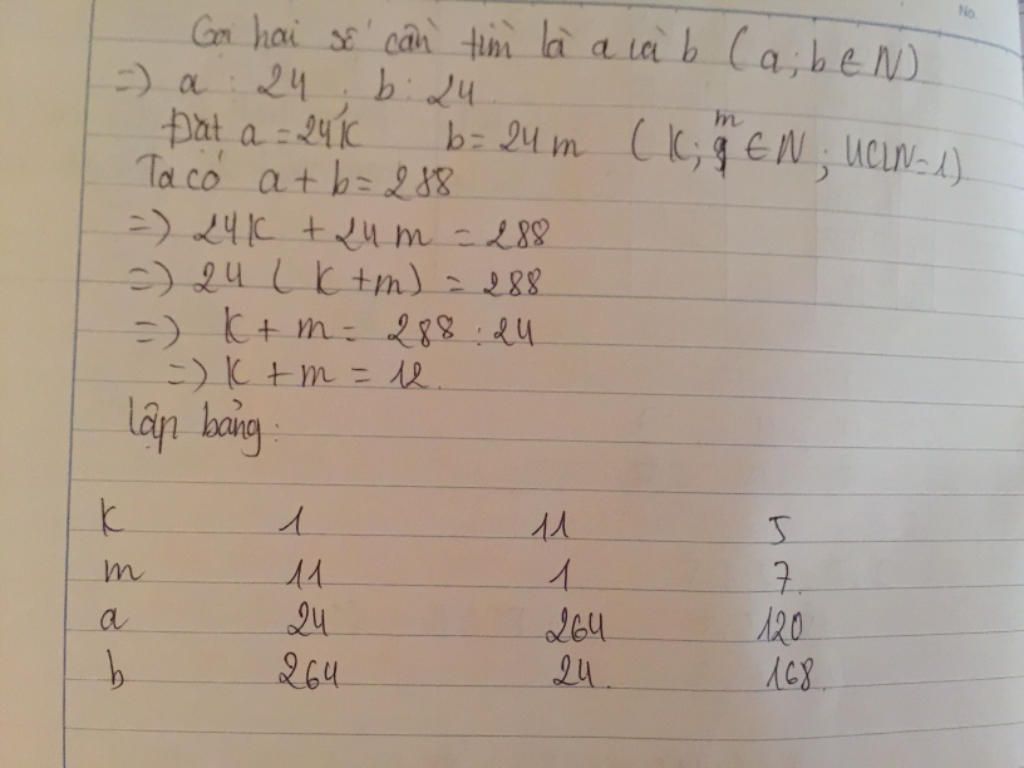 No.
Gọi hai số cần tìm là a và b (a; b ∈ N)
=) a : 24 ; b : 24
Đặt a = 24K b = 24m (K; m ∈ N; ƯCLN=1)
Ta có a + b = 288
=) 24K + 24m = 288
=) 24 (K+m) = 288
=) K + m = 288 : 24
=) K + m = 12.
lập bảng:
K 1 11 5
m 11 1 7.
a 24 264 120
b 264 24. 168.